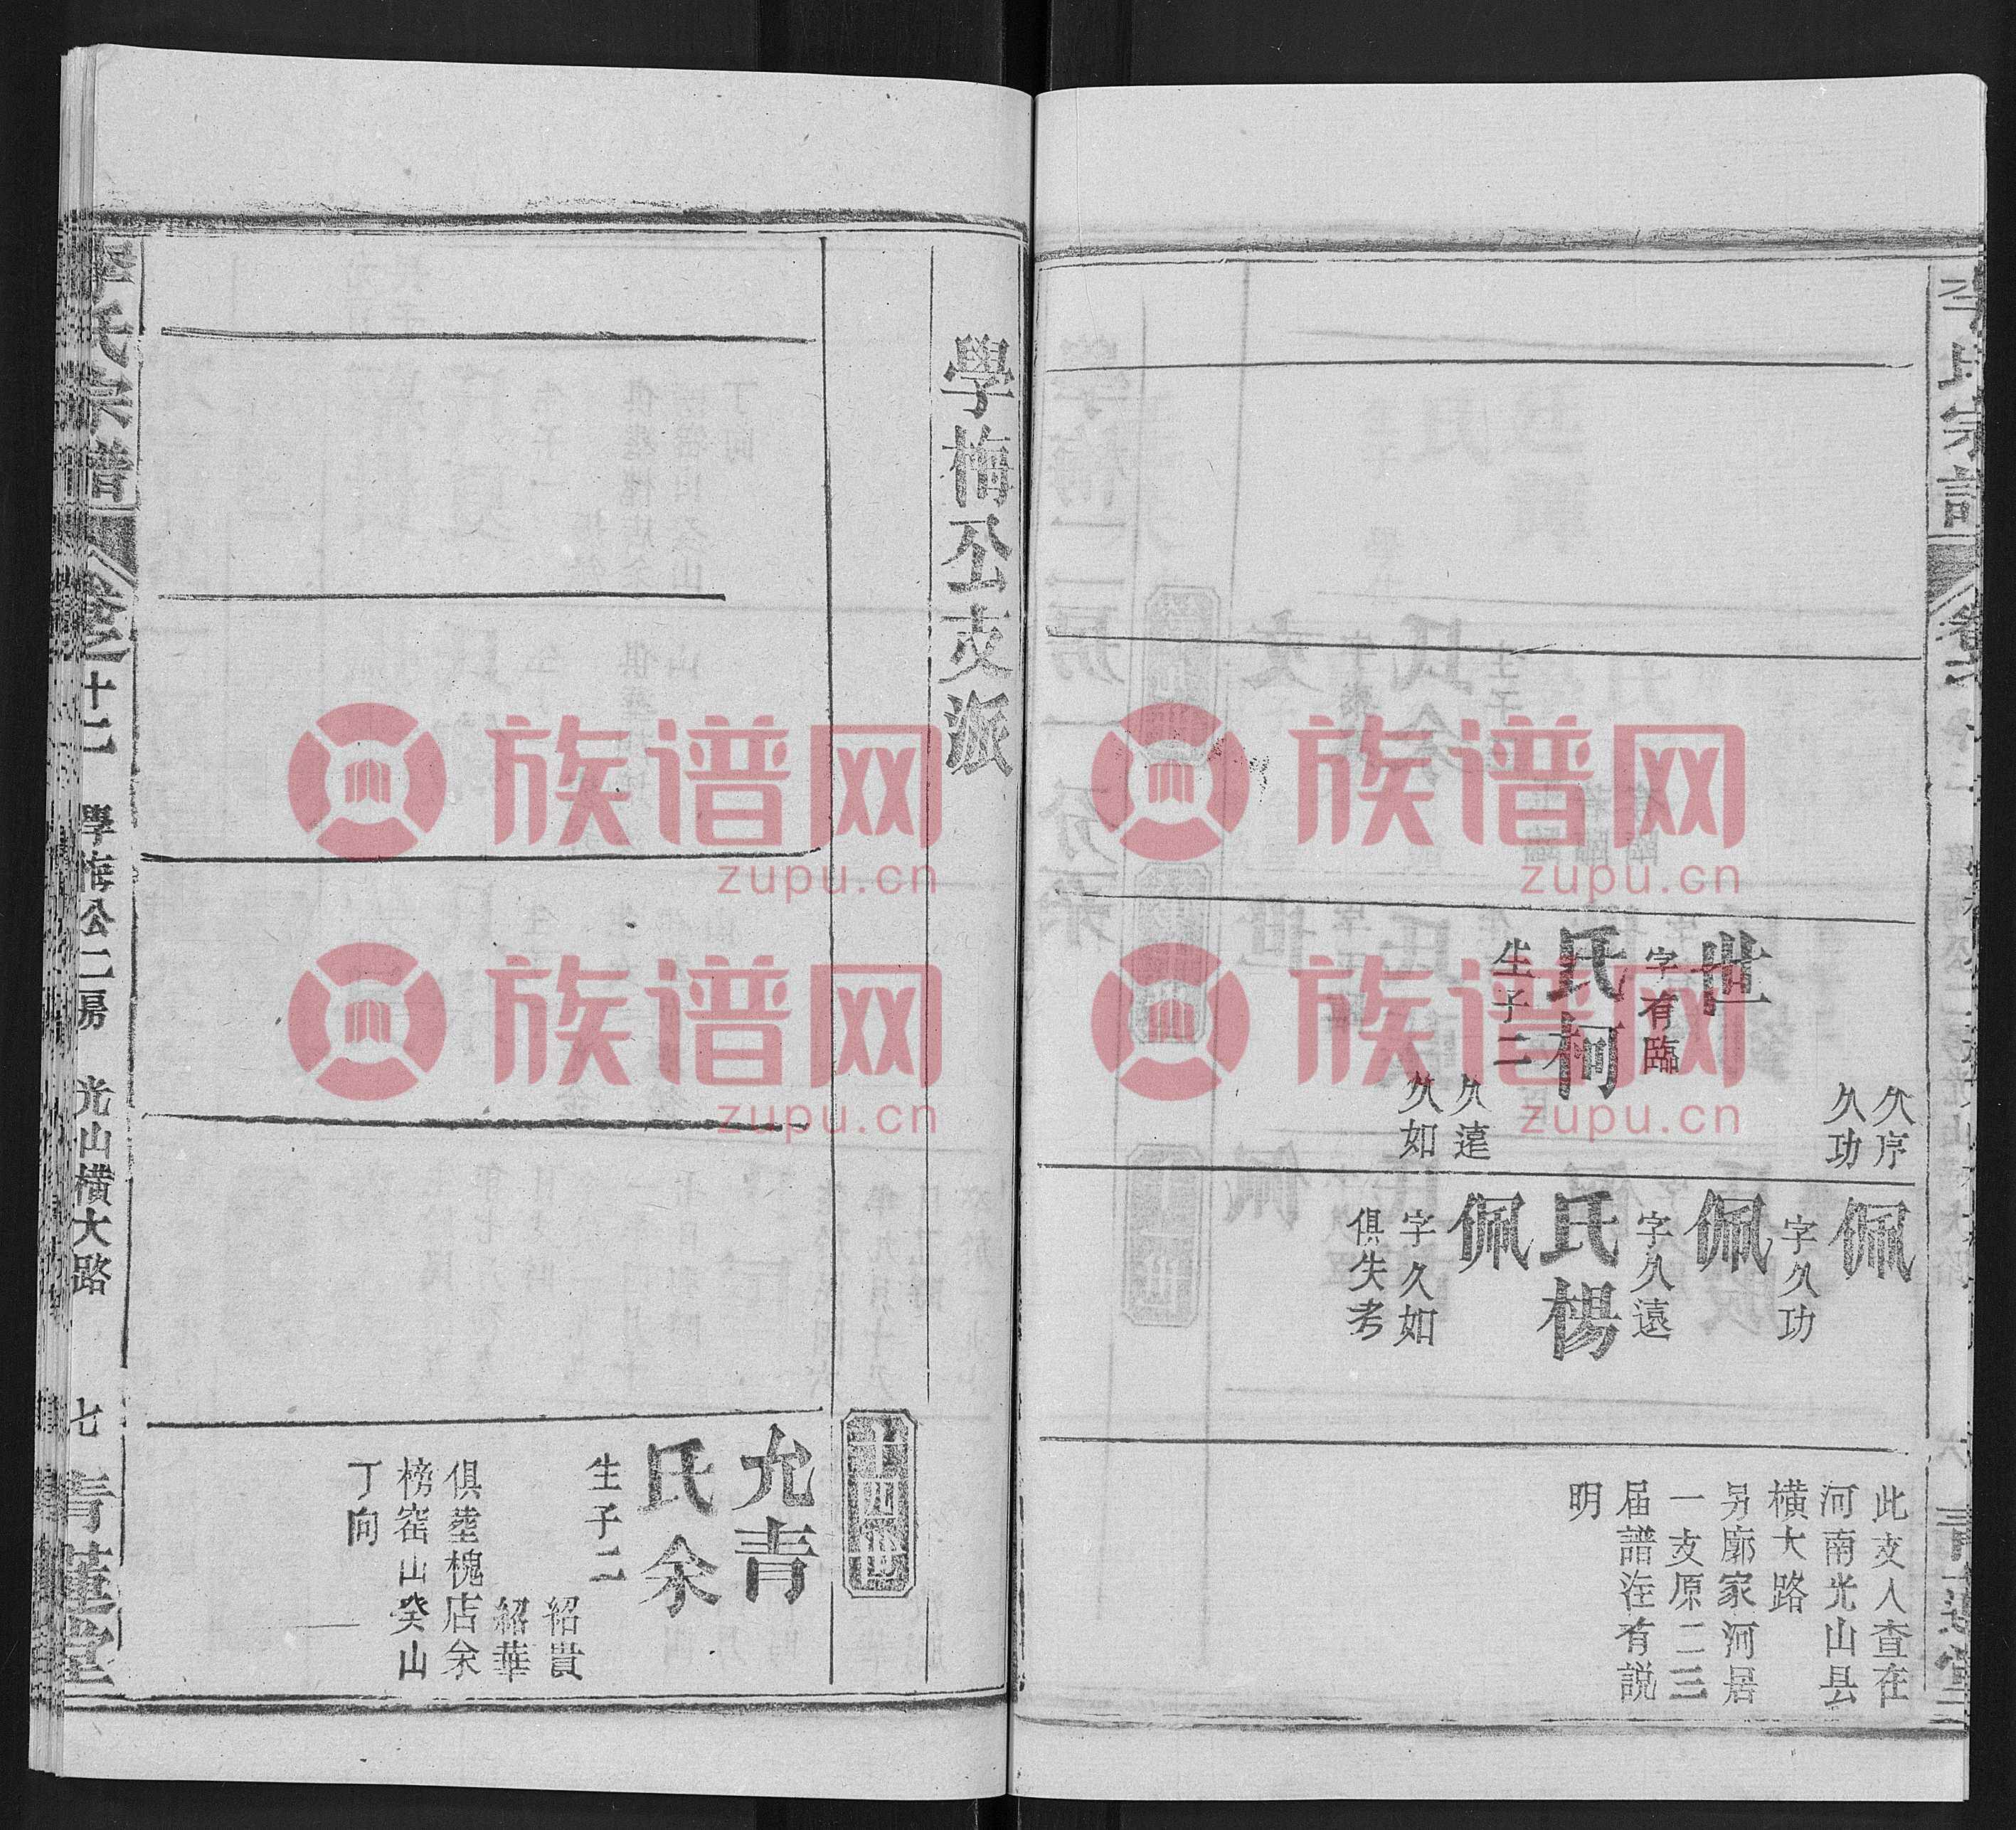 久序
久功
世
字有臨
氏柯
生子二
久遠
久如
佩
字久功
佩
字久遠
氏楊
佩
字久如
俱失考
此支人查在
河南光山县
横大路
另廓家河居
一支原二三
届譜注有説
明
學梅公支派
十四世
允青
氏余
生子二
紹貴
紹華
俱塟槐店余
榜窑山癸山
丁向
李氏宗譜
卷十二
學梅公二房
光山横大路
七
青蓮堂
族谱网
zupu.cn
族谱网
zupu.cn
族谱网
zupu.cn
族谱网
zupu.cn